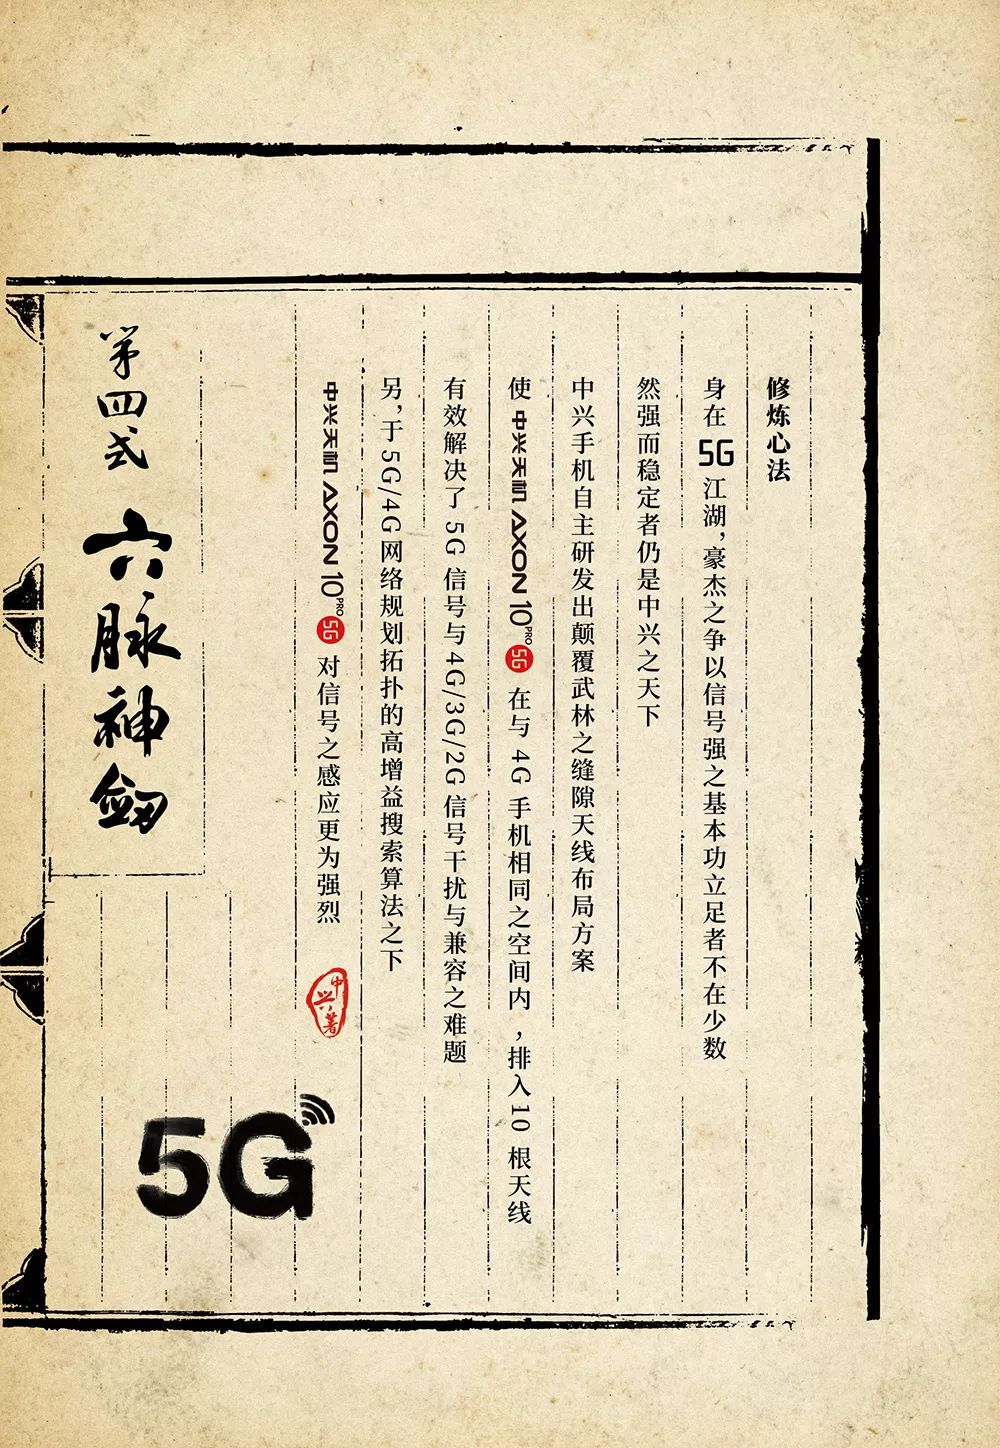 修炼心法
身在 5G 江湖，豪杰之争以信号强之基本功立足者不在少数
然强而稳定者仍是中兴之天下
中兴手机自主研发出颠覆武林之缝隙天线布局方案
使 中兴天机 AXON 10 PRO 5G 在与 4G 手机相同之空间内，排入 10 根天线
有效解决了 5G 信号与 4G/3G/2G 信号干扰与兼容之难题
另，于 5G/4G 网络规划拓扑的高增益搜索算法之下
中兴天机 AXON 10 PRO 5G 对信号之感应更为强烈
中兴著
第四式 六脉神劔
5G